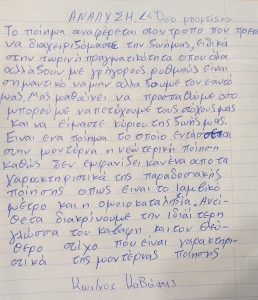 ΑΝΑΛΥΣΗ <<Όσο μπορείς>>
Το ποίημα αναφέρεται στον τρόπο που πρέπει
να διαχειριζόμαστε την ζωή μας, ειδικά
στην τωρινή πραγματικότητα οπου όλα
αλλάζουν με γρήγορους ρυθμούς είναι
σημαντικό να μην αλλάζουμε τον εαυτό
μας. Μας μαθαίνει να προσπαθούμε οσο
μπορούμε να πετύχουμε τους στόχους μας
και να είμαστε κύριοι της ζωής μας.
Ειναι ένα ποίημα το οποίο εντάσσεται
στην μοντέρνα η νεωτερική ποίηση
καθώς δεν εμφανίσει κανένα απο τα
χαρακτηριστικά της παραδοσιακής
ποίησης οπως ειναι το ιαμβικό
μέτρο και η ομοιοκαταληξία. Αντι-
θετα διακρίνουμε την ιδιαίτερη
γλώσσα του καβάφη και τον ελεύ-
θερο στίχο που είναι χαρακτηρι-
στικά της μοντέρνας ποίησης